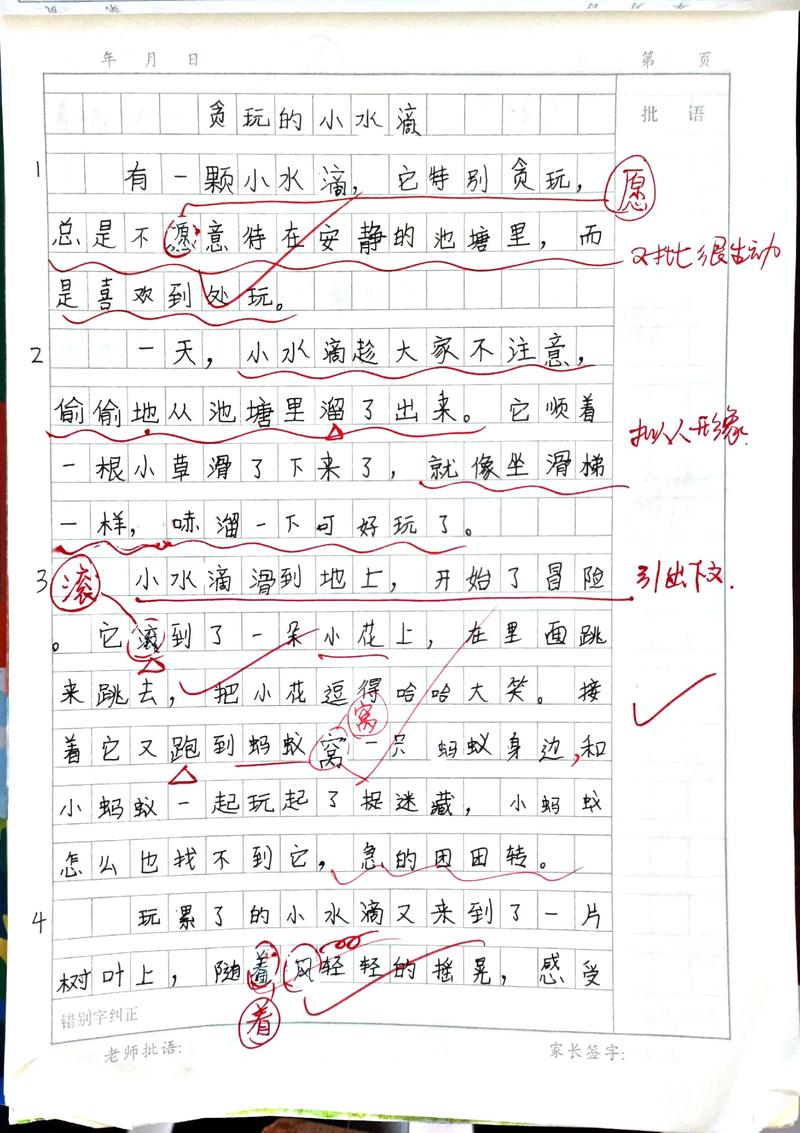 年 月 日 第 页
批 语
贪玩的小水滴
1 有一颗小水滴，它特别贪玩，
愿
总是不愿意待在安静的池塘里，而
对比 很生动
是喜欢到处玩。
2 一天，小水滴趁大家不注意，
偷偷地从池塘里溜了出来。它顺着
拟人 形象
一根小草滑了下来了，就像坐滑梯
一样，哧溜一下可好玩了。
3 小水滴滑到地上，开始了冒险
引出下文.
滚
。它滚到了一朵小花上，在里面跳
来跳去，把小花逗得哈哈大笑。接
窝
着它又跑到蚂蚁窝一只蚂蚁身边,和
小蚂蚁一起玩起了捉迷藏，小蚂蚁
怎么也找不到它，急的团团转。
4 玩累了的小水滴又来到了一片
树叶上，随着风轻轻的摇晃，感受
着
错别字纠正
老师批语:
家长签字: